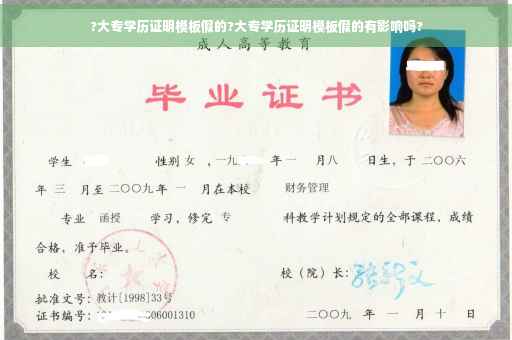 ?大专学历证明模板假的?大专学历证明模板假的有影响吗?
成人高等教育
毕业证书
学生 性别 女 ，一九 年 一 月八 日生，于 二〇〇六
年 三 月至 二〇〇九 年 一 月在本校 财务管理
专业 函授 学习，修完 专 科教学计划规定的全部课程，成绩
合格，准予毕业。
校 名： 校（院）长：
批准文号：教计[1998]33号
证书编号： 06001310 二〇〇九 年 一 月 十 日